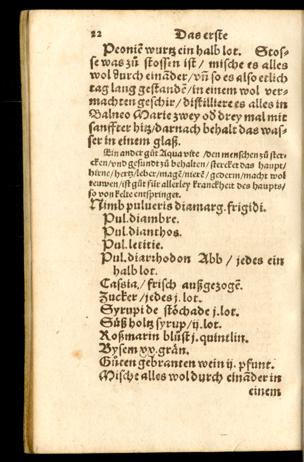 22 Das erste
Peoniē wurtz ein halb lot. Stos-
se was zů stossen ist / mische es alles
wol durch eināder / vñ so es also etlich
tag lang gestandē / in einem wol ver-
machten geschir / distilliere es alles in
Balneo Marie zwey od drey mal mit
sanffter hitz / darnach behalt das was-
ser in einem glaß.
Ein ander gůt Aqua vite / den menschen zů ster
cken / vnd gesundt zů behalten / stercket das haupt /
hirne / hertz / leber / magē / nierē / gederm / macht wol
teuwen / ist gůt für allerley kranckheit des haupts /
so von kelte entspringet.
Nimb pulueris diamarg. frigidi.
Pul. diambre.
Pul. dianthos.
Pul. letitie.
Pul. diarrhodon Abb / jedes ein
halb lot.
Cassia / frisch außgezogē.
Zucker / jedes j. lot.
Syrupi de stöchade j. lot.
Süß holtz syrup / ij. lot.
Roßmarin blůst j. quintlin.
Bysem xv. grän.
Gůten gebranten wein ij. pfunt.
Mische alles wol durch eināder in
einem